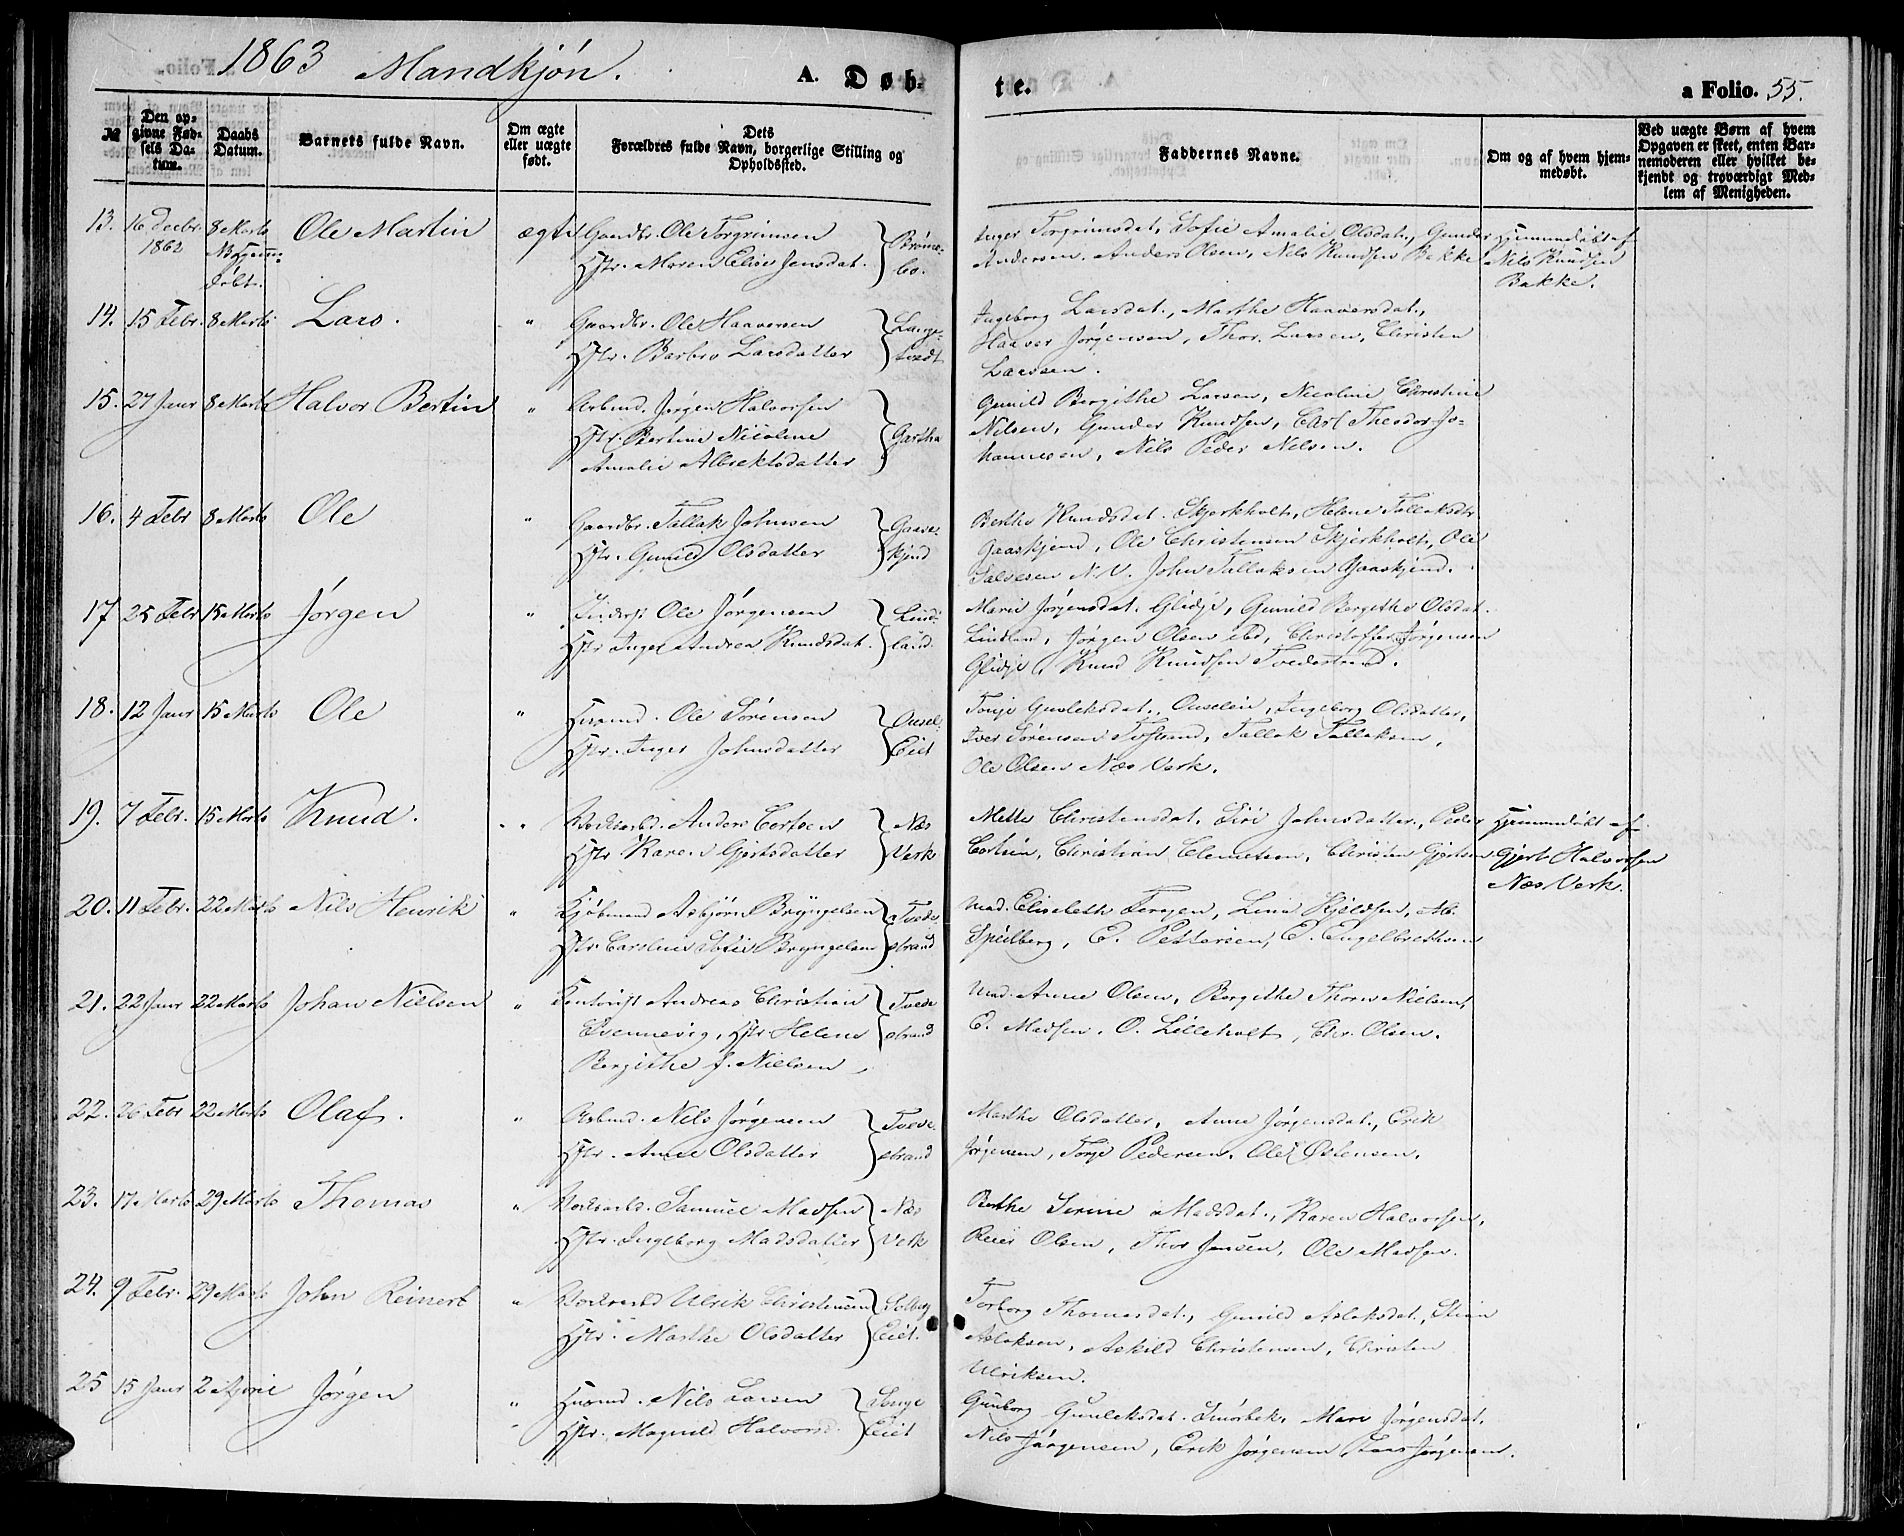 1863 Mandkjön. A. Døb-
te. a Folio. 55.
№ Den opgivne Fødsels Datum. Daabs Datum. Barnets fulde Navn. Om ægte eller uægte født. Dets Forældres fulde Navn, borgerlige Stilling og Opholdsted. Faddernes Navne. Om og af hvem hjemmedøbt. Ved uægte Børn af hvem Opgaven er skeet, enten Barnemoderen eller hvilket bekjendt og troværdigt Medlem af Menigheden.
13. 16 Decbr. 8 Marts Ole Martin ægte Gaardbr. Ole Torgrimsen
1862 Hstr. Maren Elise Jensdat.
døbt.
Inger Torgrimsdat, Sofie Amalie Olsdat., Gunder
Andersen, Anders Olsen, Nils Knudsen Bakke
Hjemmedøbt af
Nils Knudsen
Bakke.
14. 15 Febr. 8 Marts Lars. " Gaardbr. Ole Haaversen Lange-
Hstr. Barbro Larsdatter tvedt
Ingeborg Larsdat., Marthe Haaversdat.,
Haaver Jørgensen, Thor Larsen, Christen
Larssen.
15. 27 Janr 8 Marts Halvor Bertin " Arbmd. Jørgen Halvorsen
Hstr. Bertine Nicoline Gartha
Amalie Albrektsdatter
Gunild Bergithe Larsen, Nicoline Christine
Nilsen, Gunder Knudsen, Carl Theodor Jo-
hannesen, Nils Peder Nelsen.
16. 4 Febr 8 Marts Ole " Gaardbr. Tallak Johnsen Gaase-
Hstr. Gunild Olsdatter kjind
Berthe Knudsdat. Skjerkholt, Helene Tallaksdr
Gaaskjend, Ole Christensen Skjerkholt, Ole
Salvesen N.V. John Tallaksen Gaaskjend.
17 25 Febr 15 Marts Jørgen " Ole Jørgensen Lind-
Hstr Inger Andrea Knudsdat. land.
Marie Jørgensdat. Glidje, Gunild Bergithe Olsdat.
Lindland, Jørgen Olsen ibd, Christoffer Jørgensen
Glidje, Knud Knudsen Tvedestrand.
18. 12 Janr 15 Marts Ole " Husmd. Ole Sörensen Ousel-
Hstr. Inger Johnsdatter Eiet
Tonje Gunleksdat., Ouseleie, Ingeborg Olsdatter,
Iver Sörensen Tofsund, Tallak Tallaksen,
Ole Olsen Næs Verk.
19. 7 Febr. 15 Marts Knud. " Verksarbd. Anders Cortsen Næs
Hstr Karen Gjertsdatter Verk
Mette Christensdat, Siri Johnsdatter, Peder
Cortsen, Christian Clemetsen, Christen Gjertsen
Hjemmedøbt af
Gjert Halvorsen
Næs Verk.
20. 11 Febr. 22 Marts Nils Henrik " Kjöbmand Asbjörn Bryngelsen Tvede-
Hstr. Caroline Sofie Bryngelsen strand
Mad. Elisebeth Tergen, Lena Kjeldsen, M.
Speilberg, C. Pettersen, E. Engelbrethsen
21. 22 Janr 22 Marts Johan Nielsen " Kontorist Andreas Christian Tvede
Svennevig, Hstr Helene strand
Bergithe f. Nielsen,
Mad. Anne Olsen, Bergithe Thorn Nielsen,
E. Madsen, O. Lilleholt, Chr. Olsen.
22. 26 Febr 22 Marts Olaf. " Arbmd. Nils Jørgensen Tvede-
Hstr. Anne Olsdatter strand
Marthe Olsdatter, Anne Jørgensdat., Erik
Jørgensen, Torje Pedersen, Ole Østensen.
23. 17 Marts 29 Marts Thomas " Verksarbd. Samuel Madsen Næs
Hstr. Ingeborg Madsdatter Verk
Berthe Serine Madsdat., Karen Halvorsen,
Reier Olsen, Thor Jensen, Ole Madsen.
24. 9 Febr. 29 Marts John Reinert " Verksarbd Ulrik Christensen Solberg
Hstr. Marthe Olsdatter Eiet.
Torborg Thomasdat., Gunild Aslaksdat., Stian
Aslaksen, Askild Christensen, Christen
Ulriksen.
25 15 Janr 2 April Jørgen " Husmd. Nils Larsen Songe
Hstr. Magnild Halvorsd. Eiet
Gunborg Gunleksdat. Smörbek, Mari Jørgensdat.
Nils Jørgensen, Erik Jørgensen, Lars Jørgensen.